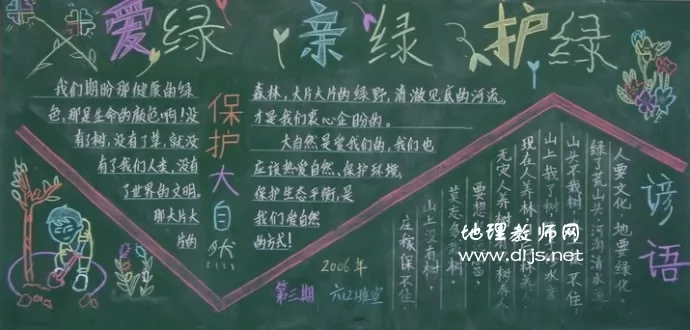 爱绿 亲绿 护绿
我们期盼那健康的绿
色,那是生命的颜色啊!没
有了树,没有了草,就没
有了我们人类,没有
了世界的文明。
那大片大
片的
保护大自然
森林,大片大片的绿野,清澈见底的河流,
才是我们衷心企盼的。
大自然是爱我们的,我们也
应该热爱自然、保护环境,
保护生态平衡,是
我们爱自然
的方式!
2006年
第三期 六(2)班宣
谚语
人要文化,地要绿化。
绿了荒山头,河沟清水流
山头不栽树 不住
山上栽了树 水库
现在人养林 林养人
无灾人养树 树养人
要想
莫忘多栽树
山上没有树,
庄稼保不住。
地理教师网
www.dljs.net